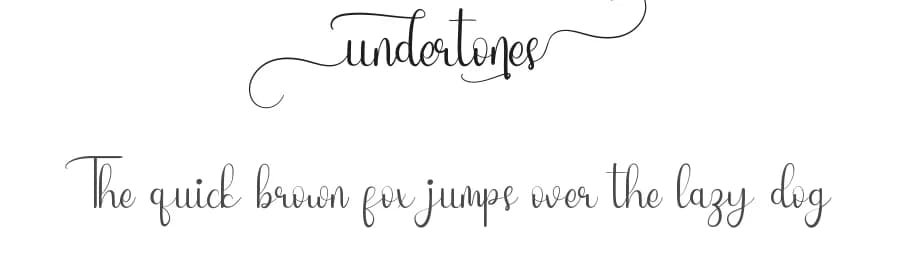 undertones
The quick brown fox jumps over the lazy dog